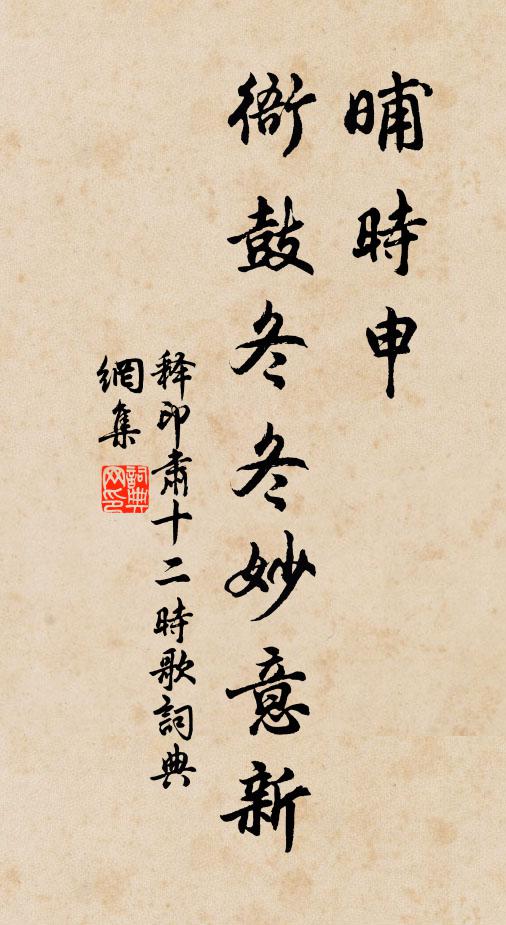 晡時申
衙鼓冬冬妙意新
释印肅十二時歌詞典
網集
詞典
网印